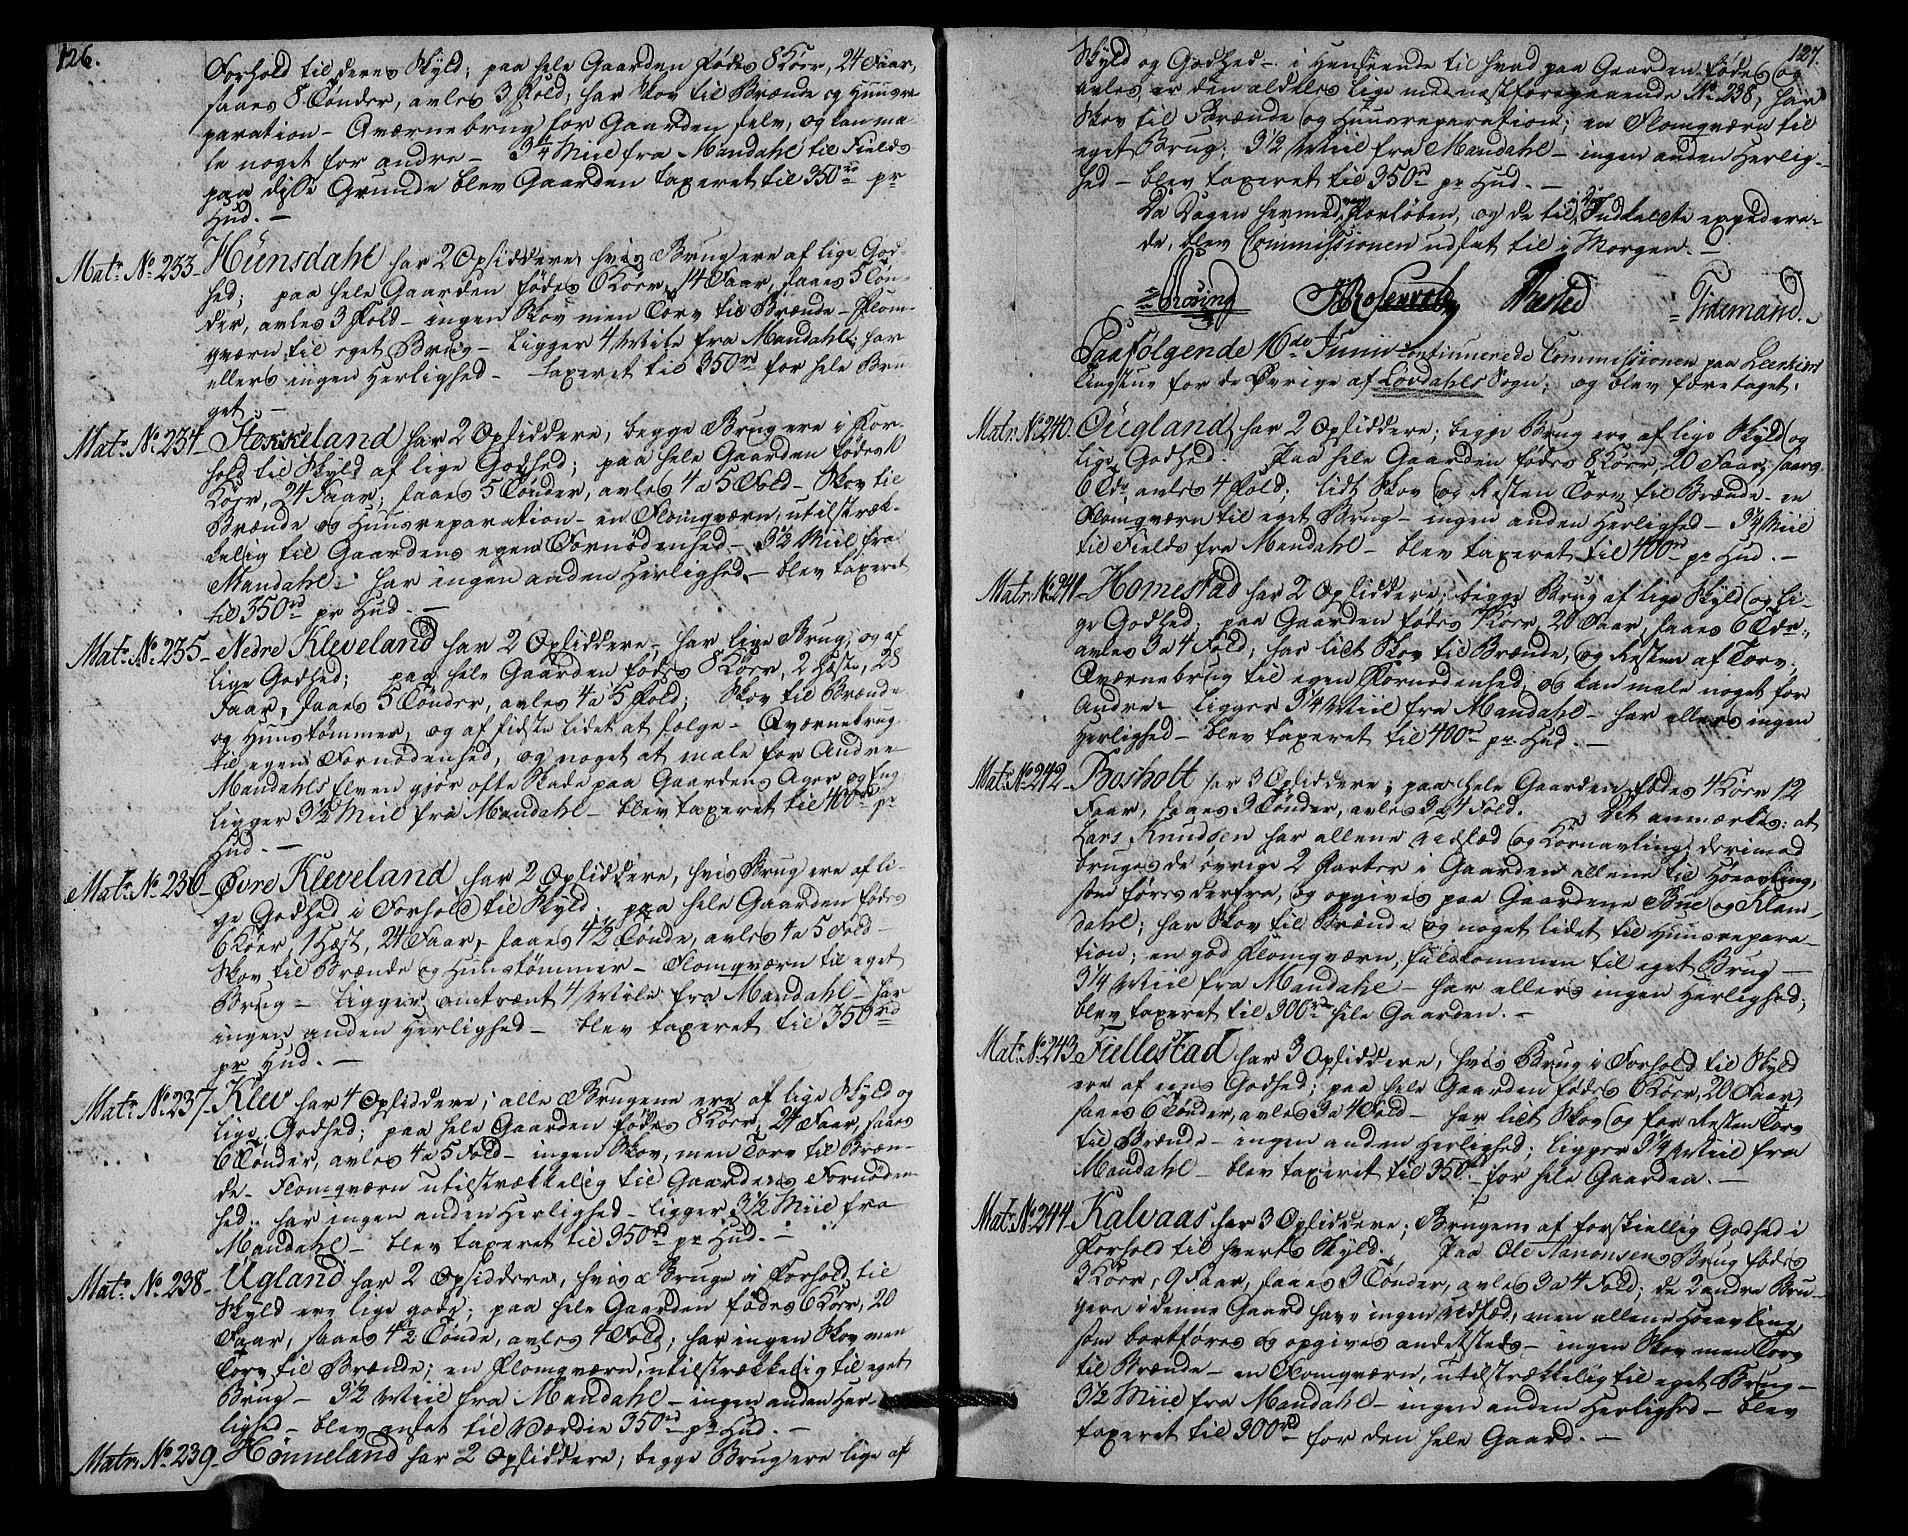 126.
Forhold til deres Skyld; paa hele Gaarden fødes 8 Köer, 24 Faar,
saaes 8 Tönder, avles 3 Fold; har Skov til Brænde og Huusre
paration - Qværnebrug for Gaarden selv, og kan ma-
le noget for andre - 3¼ Miil fra Mandahl til Fields
paa disse Grunde blev Gaarden taxeret til 350 rd pr
Hud. -
Matr. No. 233 - Hünsdahl har 2 Opsiddere, hvis Brug ere af lige God-
hed; paa hele Gaarden födes 6 Köer, 14 Faar, saaes 5 Tön-
der, avles 3 Fold - ingen Skov men Torv til Brænde - Flom-
qværn til eget Brug - ligger 4 Mile fra Mandahl; har
ellers ingen Herlighed - taxeret til 350 rd for hele Bru
get -
Matr. No. 234 - Stokkeland har 2 Opsiddere, begge Brug ere i For-
hold til Skyld af lige Godhed; paa hele Gaarden födes 10
Köer, 24 Faar; saaes 5 Tönder, avles 4 a 5 Fold - Skov til
Brænde og Huusreparation - en Flomqværn, utilstræk-
kelig til Gaardens egen Fornödenhed - 3½ Miil fra
Mandahl; har ingen anden Herlighed - blev taxeret
til 350 rd pr Hud. -
Matr. No. 235 - Nedre Kleveland har 2 Opsiddere, har lige Brug, og af
lige Godhed; paa hele Gaarden födes 8 Köer, 2 Heste, 28
Faar, saaes 5 Tönder, avles 4 a 5 Fold; Skov til Brænde
og Huustömmer, og af sidste lidet at sælge - Qværnebrug
til egen Fornödenhed, og noget at male for Andre
Mandahls Elven giör ofte Skade paa Gaardens Ager og Eng
ligger 3½ Miil fra Mandahl - blev taxeret til 400 rd pr
Hud. -
Matr. No. 236 - Øvre Kleveland har 2 Opsiddere, hvis Brug ere af li-
ge Godhed i Forhold til Skyld. paa hele Gaarden födes
6 Köer, 1 Hest, 24 Faar, saaes 4½ Tönde, avles 4 a 5 Fold -
Skov til Brænde og Huustömmer - Flomqværn til eget
Brug - ligger omtrent 4 Mile fra Mandahl - har
ingen anden Herlighed - blev taxeret til 350 rd
pr Hud. -
Matr. No. 237 - Klev har 4 Opsiddere; alle Brugene ere af lige Skyld og
lige Godhed; paa hele Gaarden födes 8 Köer, 24 Faar, saaes
6 Tönder, avles 4 a 5 Fold - ingen Skov, men Torv til Bræn-
de - Flomqværn utilstrækkelig til Gaardens Fornöden
hed. har ingen anden Herlighed - ligger 3½ Miil fra
Mandahl - blev taxeret til 350 rd pr Hud. -
Matr. No. 238 - Ugland har 2 Opsiddere, hvis Bruge i Forhold til
Skyld ere lige gode; paa hele Gaarden födes 6 Köer, 20
Faar, saaes 4½ Tönde, avles 4 Fold; har ingen Skov men
Torv til Brænde; en Flomqværn, utilstrækkelig til eget
Brug - 3½ Miil fra Mandahl - ingen anden Her-
lighed - blev ansat til Værdie 350 rd pr Hud. -
Matr. No. 239 - Hönneland har 2 Opsiddere; begge Brug ere lige af
127.
Skyld og Godhed - i Henseende til hvad paa Gaarden födes og
avles, er den aldeles lige med næstforegaaende No. 238, har
Skov til Brænde og Huusreparation; en Flomqværn til
eget Brug. 3½ Miil fra Mandahl - ingen anden Herlig-
hed - blev taxeret til 350 rd pr Hud. -
Da Dagen hermed var forlöben, og de til i Dag Indkaldte expedere-
de, blev Commissionen udsat til i Morgen. -
Tidemand.
Paafölgende 16de Junii continuerede Commissionen paa
Tingstue for de Øvrige af Lovdahls Sogn; og blev foretaget:
Matr. No. 240. Öügland, har 2 Opsiddere; begge Brug ere af lige Skyld og
lige Godhed. Paa hele Gaarden födes 8 Köer, 20 Faar, saaes
6 Tdr. avles 4 Fold; lidt Skov og Resten Torv til Brænde - en
Flomqværn til eget Brug - ingen anden Herlighed - 3¼ Miil
til Fields fra Mandahl - blev taxeret til 400 rd pr Hud. -
Matr. No. 241 - Homestad har 2 Opsiddere; begge Brug af lige Skyld og li-
ge Godhed; paa Gaarden födes 7 Köer, 20 Faar, saaes 6 Tdr.,
avles 3 a 4 Fold; har lidt Skov til Brænde, og Resten af Torv.
Qværnebrug til egen Fornödenhed, og kan male noget for
Andre - ligger 3¼ Miil fra Mandahl - har ellers ingen
Herlighed - blev taxeret til 400 rd pr Hud. -
Matr. No. 242 - Bosholt har 3 Opsiddere; paa hele Gaarden födes 4 Köer 12
Faar, saaes 3 Tönder, avles 3 a 4 Fold. Det anmærkes: at
Lars Knudsen har allene Udsæd og Kornavling; derimod
bruges de övrige 2 Parter i Gaarden allene til Höeavling,
som föres derfra, og opgives paa Gaardene Bue og Klam-
dahl; har Skov til Brænde og noget lidet til Huusrepara-
tion; en god Flomqværn, fuldkommen til eget Brug -
3¼ Miil fra Mandahl - har ellers ingen Herlighed;
blev taxeret til 300 rd hele Gaarden. -
Matr. No. 243 Fiellestad har 3 Opsiddere, hvis Brug i Forhold til Skyld
ere af eens Godhed; paa hele Gaarden födes 6 Köer, 20 Faar,
saaes 6 Tönder, avles 3 a 4 Fold - har lidt Skov og for Resten Torv
til Brænde - ingen anden Herlighed; ligger 3¼ Miil fra
Mandahl - blev taxeret til 350 rd for hele Gaarden. -
Matr. No. 244 - Kalvaas har 3 Opsiddere; Brugene af forskiellig Godhed i
Forhold til hverts Skyld. Paa Ole Aanonsens Brug födes
3 Köer, 9 Faar, saaes 3 Tönder, avles 3 a 4 Fold; de 2 andre Bru-
gere i denne Gaard have ingen Udsæd, men allene Höeavling,
som bortföres og opgives andetsteds - ingen Skov men Torv
til Brænde - en Flomqværn, utilstrækkelig til eget Brug -
3½ Miil fra Mandahl - ingen anden Herlighed - blev
taxeret til 300 rd for den hele Gaard. -